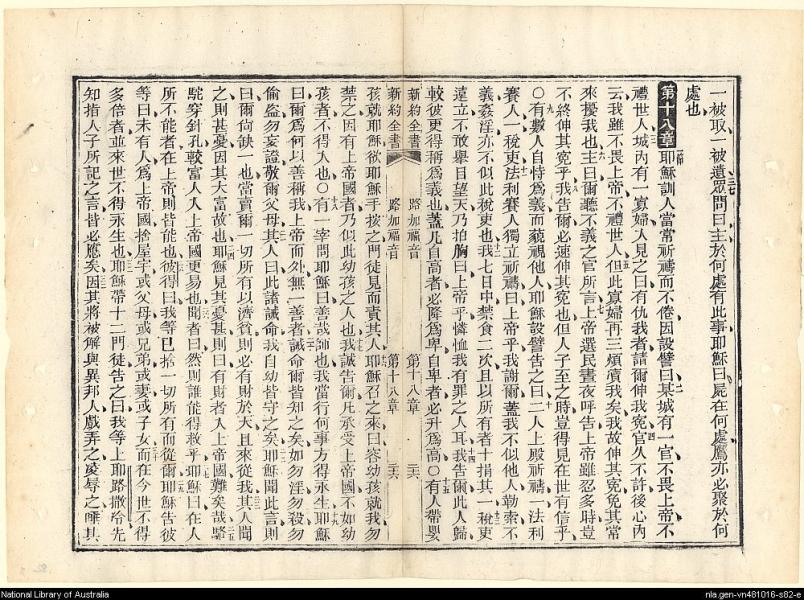 一被取一被遺眾問曰主於何處有此事耶穌曰屍在何處鷹亦必聚於何
處也
第十八章耶穌訓人當常祈禱而不倦因設譬曰某城有一官不畏上帝不
禮世人城內有一寡婦人見之曰有仇我者請爾伸我寃官久不許後心內
云我雖不畏上帝不禮世人但此寡婦再三煩瀆我矣我故伸其寃免其常
來擾我也主曰爾聽不義之官所言上帝選民晝夜呼告上帝雖忍多時豈
不終伸其寃乎我告爾必速伸其寃也但人子至之時豈得見在世有信乎
○有數人自恃爲義而藐視他人耶穌設譬告之曰二人上殿祈禱一法利
賽人一稅吏法利賽人獨立祈禱曰上帝乎我謝爾蓋我不似他人勒索不
義姦淫亦不似此稅吏也我七日中禁食二次且以所有者十捐其一稅吏
遠立不敢舉目望天乃拍胸曰上帝乎憐恤我有罪之人耳我告爾此人歸
較彼更得稱爲義也蓋凡自高者必降爲卑自卑者必升爲高○有人帶嬰
新約全書 路加福音 第十八章 三六
新約全書 路加福音 第十八章 三六
孩就耶穌欲耶穌手按之門徒見而責其人耶穌召之來曰容幼孩就我勿
禁之因有上帝國者乃似此幼孩之人也我誠告爾凡承受上帝國不如幼
孩者不得入也○有一宰問耶穌曰善哉師也我當行何事方得永生耶穌
曰爾爲何以善稱我上帝而外無一善者誡命爾皆知之矣如勿淫勿殺勿
偷盜勿妄證敬爾父母其人曰此諸誡命我自幼皆守之矣耶穌聞此言則
曰爾尙缺一也當賣爾一切所有以濟貧則必有財於天且來從我其人聞
之則甚憂因其大富故也耶穌見其憂甚則曰有財者入上帝國難矣哉駱
駝穿針孔較富人入上帝國更易也聞者曰然則誰能得救乎耶穌曰在人
所不能者在上帝則皆能也彼得曰我等已捨一切所有而從爾耶穌告彼
等曰未有人爲上帝國捨屋宇或父母或兄弟或妻或子女而在今世不得
多倍者並來世不得永生也耶穌帶十二門徒告之曰我等上耶路撒冷先
知指人子所記之言皆必應矣因其將被解與異邦人戲弄之凌辱之唾其
National Library of Australia
nla.gen-vn481016-s82-e